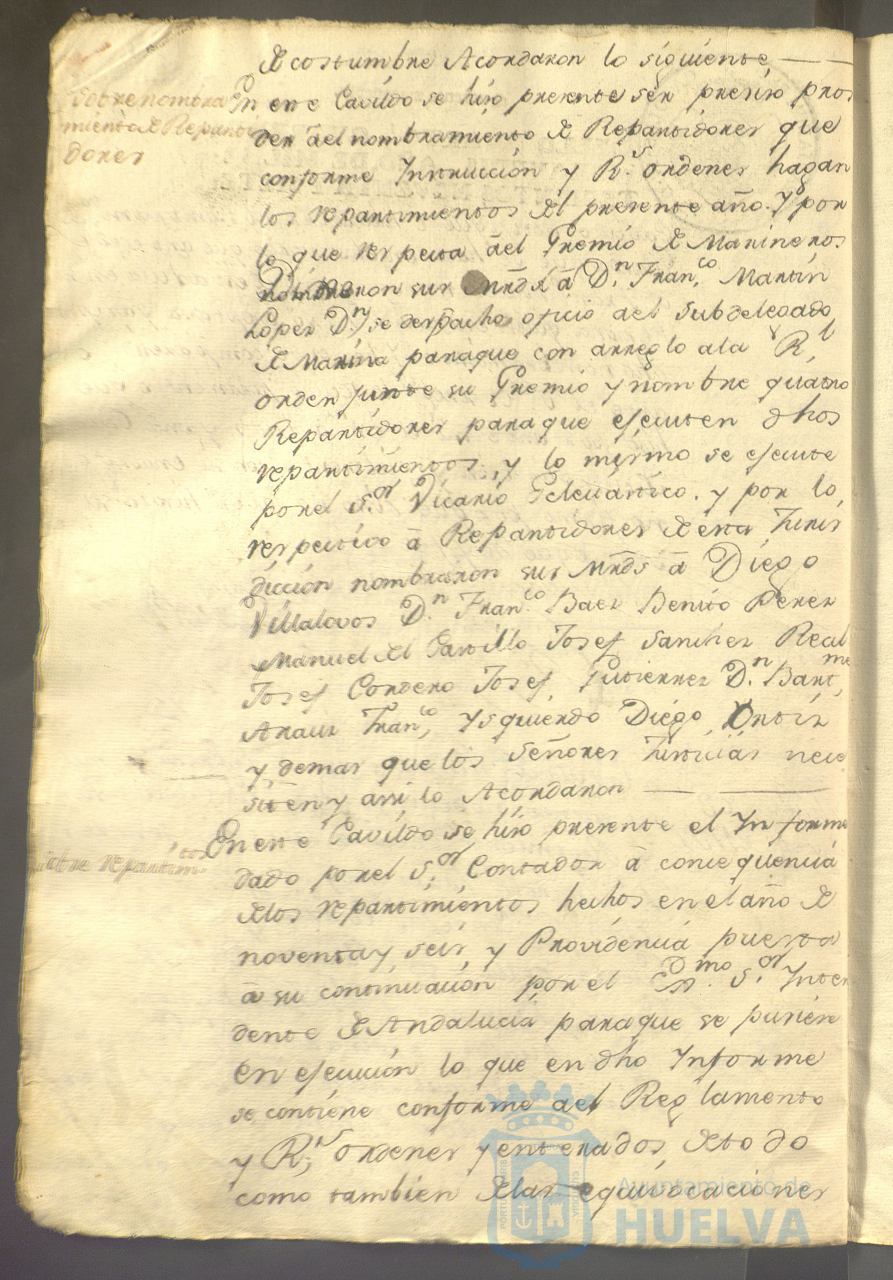 de costumbre Acordaron lo siguiente
Sobre nombra
miento de Reparti
dores
En este Cavildo se hiso presente ser presiso pros
der âel nombramiento de Repartidores que
conforme Instruccion y R.s ordenes hagan
los repartimientos del presente año. Y por
lo que respecta âel Gremio de Marineros
nombraron sus Mrds â D.n Fran.co Martin
Lopez D.n y se despacho oficio âel Subdelegado
de Marina paraque con arreglo ala R.l
orden junte su Gremio y nombre quatro
Repartidores paraque ejecuten dhos
repartimientos, y lo mismo se ejecute
por el S.or Vicario Eclesiastico. y por lo
respectivo â Repartidores de esta Juris
diccion nombraron sus Mrds â Diego
Villalovos D.n Fran.co Baez Benito Perez
Manuel del Castillo Josef Sanchez Real
Josef Cordero Josef Gutierrez D.n Bart.me
Arauz Fran.co Ysquierdo Diego Ortiz
y demas que los Señores Justicias nece
siten y assi lo Acordaron
En este Cavildo se hiso presente el Informe
Sobre repartim.tos
dado por el S.or Contador â consequencia
delos repartimientos hechos en el año de
noventa y seis, y Providencia puesta
â su continuacion por el S.or Inten
dente de Andalucia paraque se pusiese
en ejecucion lo que en dho Informe
se contiene conforme âel Reglamento
y R.s ordenes y enterados de todo
como tambien delas equivocaciones
Ayuntamiento de
HUELVA